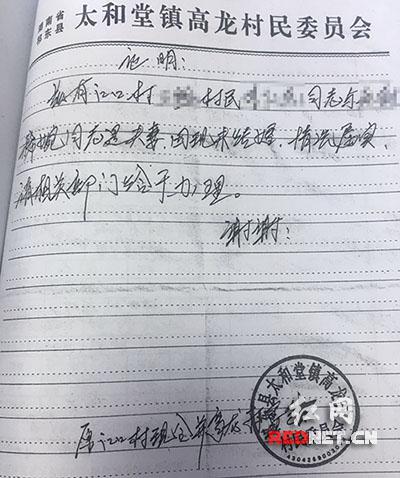 湖南省
祁东县 太和堂镇高龙村民委员会
证明：
兹有江口村 村民 同志与
同志是夫妻，因现未结婚，情况属实，
请相关部门给予办理。
谢谢！
原江口村现合并高龙村
祁东县太和堂镇高龙村民委员会
红网
REDNET.CN